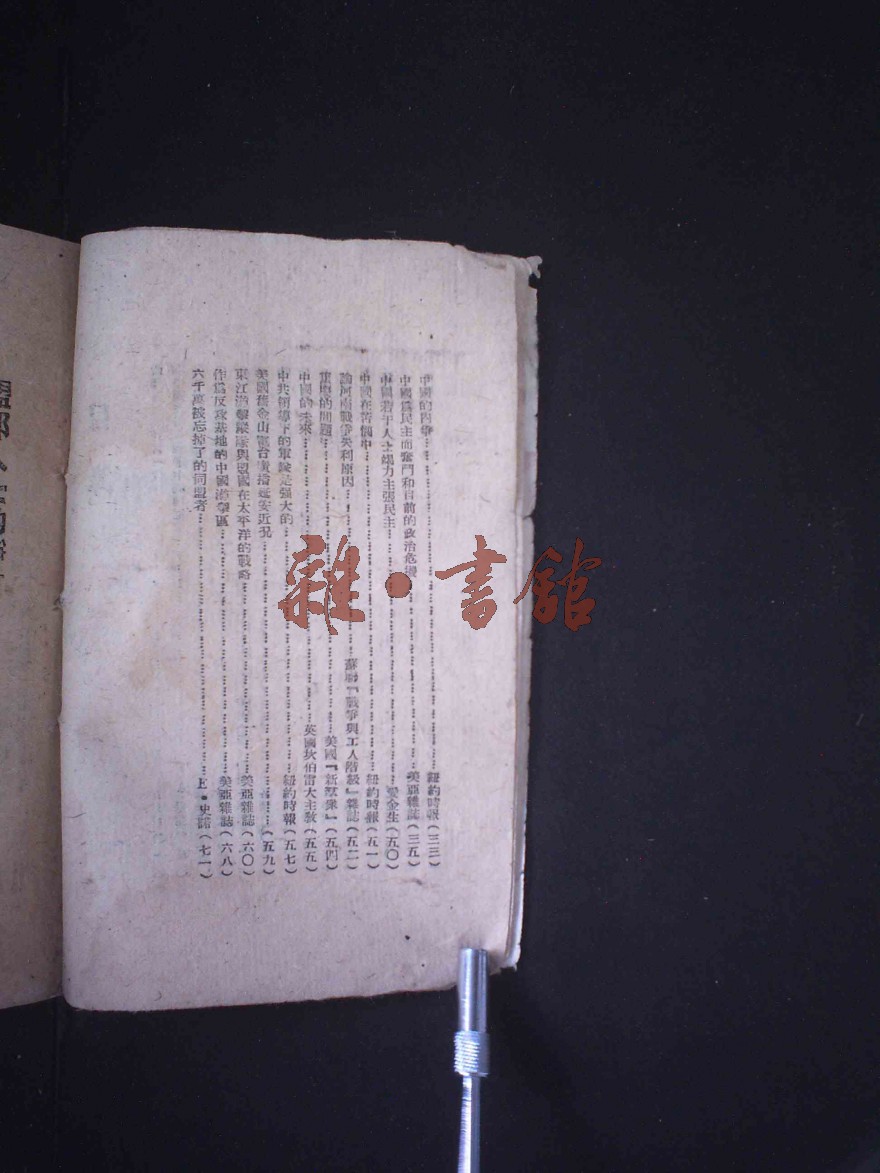 中國的內爭 紐約時報(三三)
中國爲民主而奮鬥和目前的政治危機 美亞雜誌(三五)
中國若干人士竭力主張民主 愛金生(五〇)
中國在苦惱中 紐約時報(五一)
論河南戰爭失利原因 蘇聯『戰爭與工人階級』雜誌(五二)
重慶的問題 美國『新羣衆』(五四)
中國的未來 英國坎伯雷大主教(五五)
中共領導下的軍隊是强大的 紐約時報(五七)
美國舊金山電台廣播延安近況 (五九)
東江游擊縱隊與盟國在太平洋的戰略 美亞雜誌(六〇)
作爲反攻基地的中國游擊區 美亞雜誌(六八)
六千萬被忘掉了的同盟者 E·史諾(七一)
雜·書館